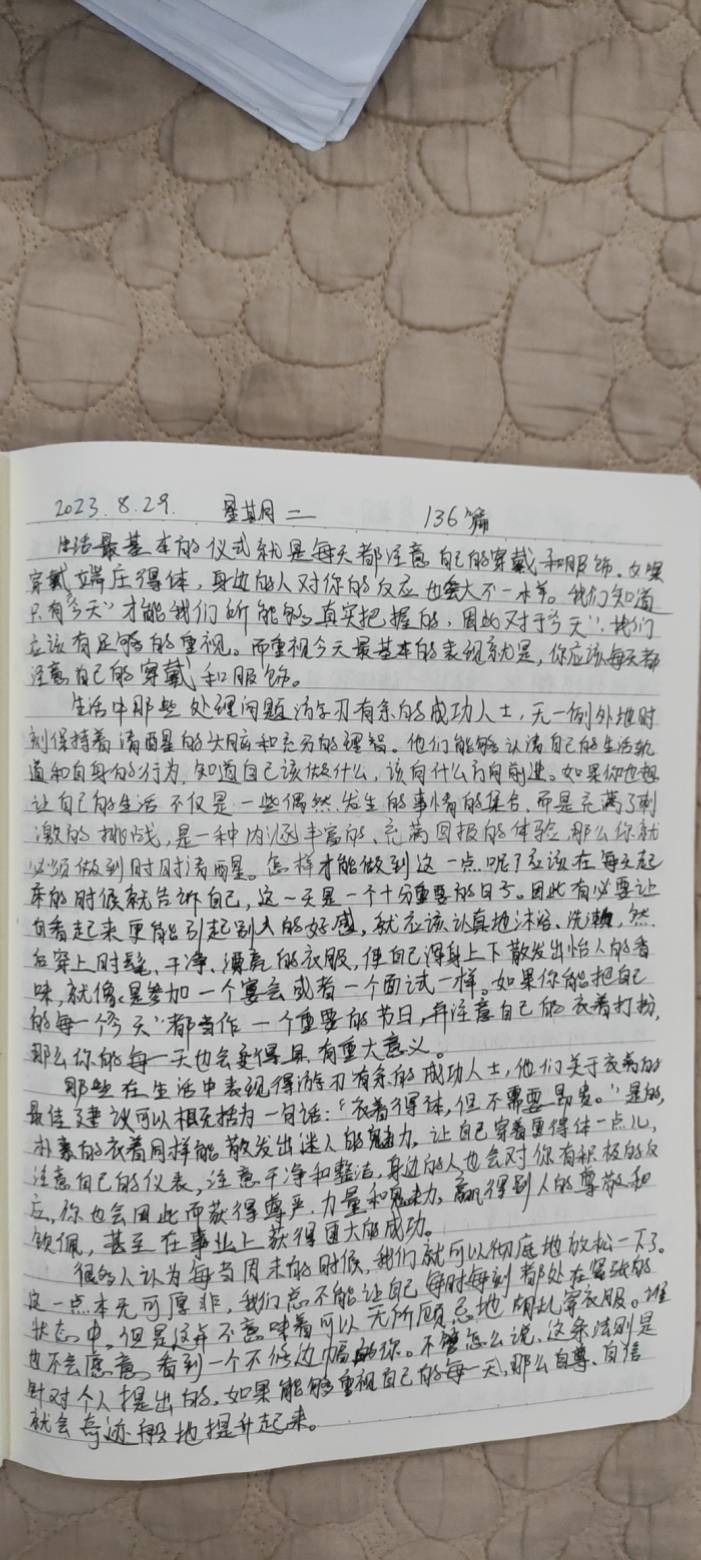 2023.8.29. 星期二 136篇
生活最基本的仪式就是每天都注意自己的穿戴和服饰。如果
穿戴端庄得体，身边的人对你的反应也会大不一样。我们知道
只有"今天"才能我们所能够真实把握的，因此对于"今天"，我们
应该有足够的重视。而重视今天最基本的表现就是，你应该每天都
注意自己的穿戴和服饰。
生活中那些处理问题游刃有余的成功人士，无一例外地时
刻保持着清醒的头脑和充分的理智。他们能够认清自己的生活轨
道和自身的行为，知道自己该做什么，该向什么方向前进。如果你也想
让自己的生活不仅是一些偶然发生的事情的集合，而是充满了刺
激的挑战，是一种内涵丰富的、充满回报的体验，那么你就
必须做到时时清醒。怎样才能做到这一点呢？应该在每天起
床的时候就告诉自己，这一天是一个十分重要的日子。因此有必要让
自看起来更能引起别人的好感，就应该认真地沐浴、洗漱，然
后穿上时髦、干净、漂亮的衣服，使自己浑身上下散发出怡人的香
味，就像是参加一个宴会或者一个面试一样。如果你能把自己
的每一个"今天"都当作一个重要的节日，并注意自己的衣着打扮，
那么你的每一天也会变得具有重大意义。
那些在生活中表现得游刃有余的成功人士，他们关于衣着的
最佳建议可以概括为一句话："衣着得体，但不需要昂贵。"是的，
朴素的衣着同样能散发出迷人的魅力，让自己穿着更得体一点儿，
注意自己的仪表，注意干净和整洁，身边的人也会对你有积极的反
应，你也会因此而获得尊严、力量和魅力，赢得别人的尊敬和
钦佩，甚至在事业上获得更大的成功。
很多人认为每当周末的时候，我们就可以彻底地放松一下了。
这一点本无可厚非，我们总不能让自己每时每刻都处在紧张的
状态中。但是这并不意味着可以无所顾忌地胡乱穿衣服。谁
也不会愿意看到一个不修边幅的你。不管怎么说，这条法则是
针对个人提出的，如果能够重视自己的每一天，那么自尊、自信
就会奇迹般地提升起来。